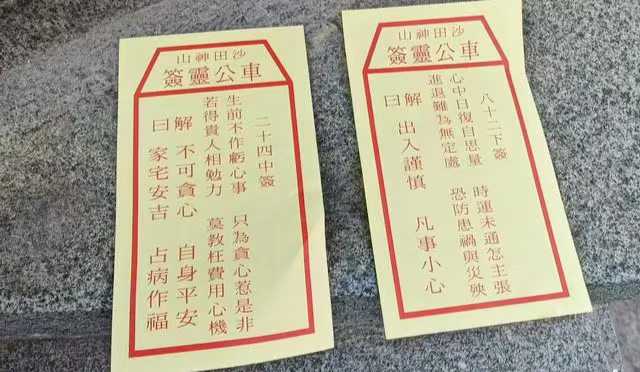 沙田神山
車公靈簽
二十四中簽
生前不作虧心事 只為貪心惹是非
若得貴人相勉力 莫教枉費用心機
解 不可貪心 自身平安
曰 家宅安吉 占病作福
沙田神山
車公靈簽
八十二下簽
心中日復自思量 時運未通怎主張
進退難為無定處 恐防患禍與災殃
解 出入謹慎 凡事小心
曰